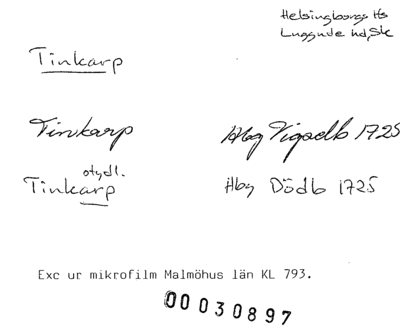 Helsingborgs lfs
Luggude hd, Sk
Tinkarp
Tinkarp Hbg Vigselb 1725
otydl.
Tinkarp Hbg Dödb 1725
Exc ur mikrofilm Malmöhus län KL 793.
00030897